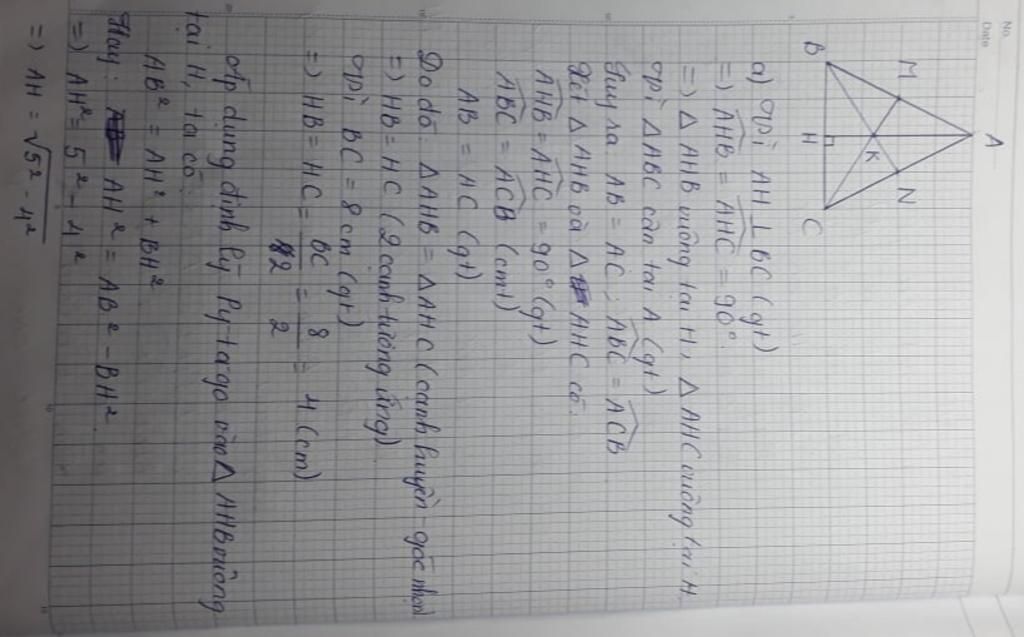 No.
Date
A
M
N
K
B
H
C
a) Vì AH ⊥ BC (gt)
=) \widehat{AHB} = \widehat{AHC} = 90°.
=) △ AHB vuông tại H, △ AHC vuông tại H
Vì △ABC cân tại A (gt)
Suy ra AB = AC ; \widehat{ABC} = \widehat{ACB}
Xét △ AHB và △ AHC có:
\widehat{AHB} = \widehat{AHC} = 90° (gt)
\widehat{ABC} = \widehat{ACB} (cmt)
AB = AC (gt)
Do đó: △AHB = △AHC (cạnh huyền - góc nhọn)
=) HB = HC (2 cạnh tương ứng)
Vì BC = 8 cm (gt)
=) HB = HC = BC/2 = 8/2 = 4 (cm)
Áp dụng định lý Py-ta-go vào △ AHB vuông
tại H, ta có:
AB² = AH² + BH²
Hay: AH² = AB² - BH².
=) AH² = 5² - 4²
=) AH = √5² - 4²